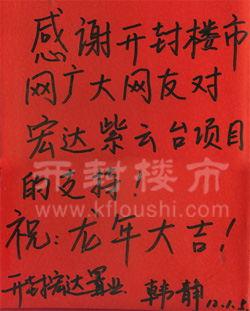 感谢开封楼市
网广大网友对
宏达紫云台项目
的支持！
开封楼市
www.kfloushi.com
祝：龙年大吉！
开封宏达置业 韩静 12.1.5